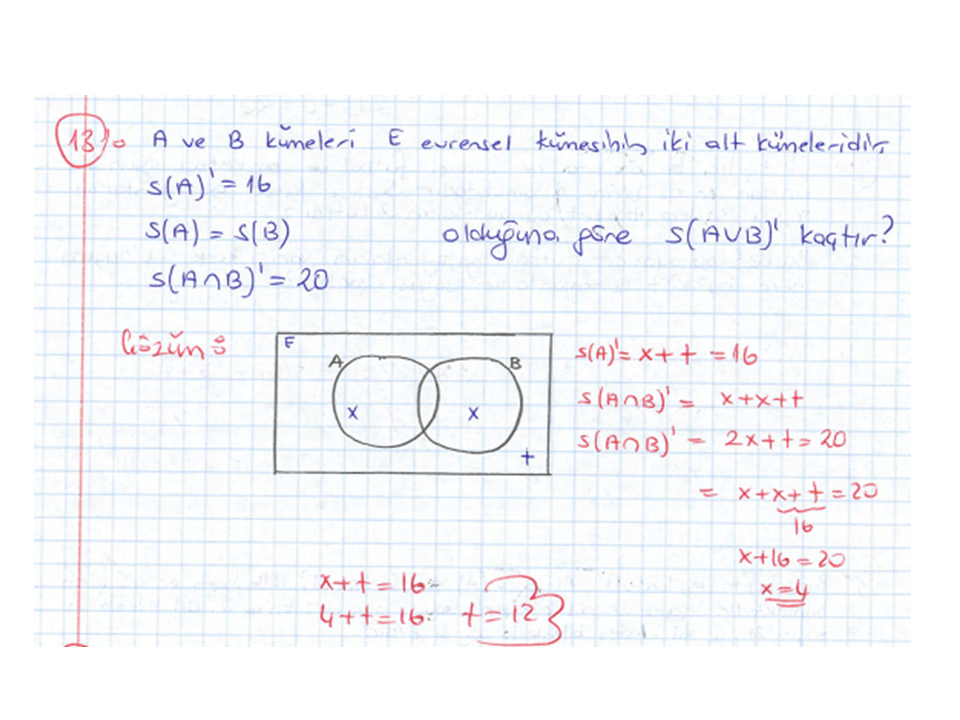 13)o A ve B kümeleri E evrensel kümesinin iki alt kümeleridir.
s(A)' = 16
s(A) = s(B) olduğuna göre s(A∪B)' kaçtır?
s(A∩B)' = 20
Çözüm:
E
A B
x x
t
s(A)' = x+t = 16
s(A∩B)' = x+x+t
s(A∩B)' = 2x+t = 20
= x+x+t = 20
16
x+16 = 20
x=4
x+t = 16
4+t = 16 t = 12